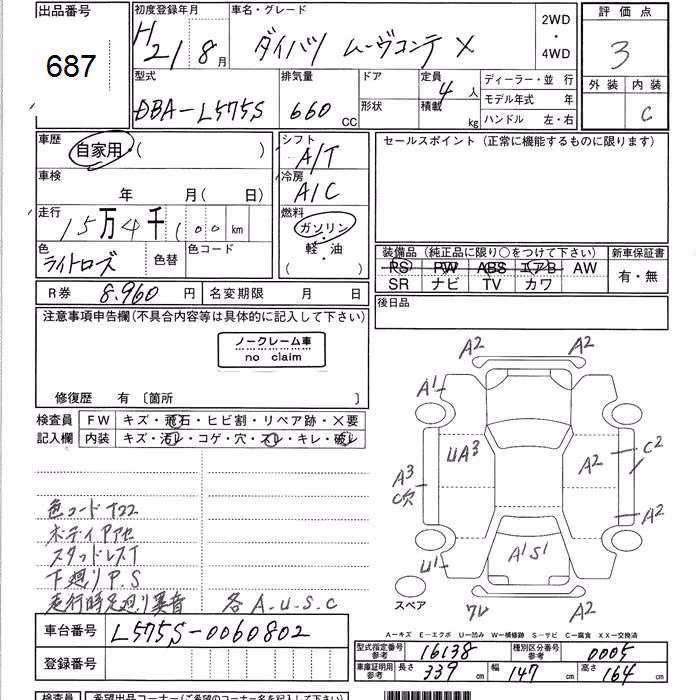 出品番号
687
初度登録年月
H21 8月
車名・グレード
ダイハツ ムーヴコンテ X
2WD
・
4WD
評価点
3
型式
DBA-L575S
排気量
660 CC
ドア
形状
定員
4人
積載
kg
ディーラー・並 行
モデル年式 年
ハンドル 左・右
外装 内装
C
車歴
自家用・( )
シフト
A/T
セールスポイント (正常に機能するものに限ります)
車検
年 月( 日)
冷房
A/C
走行
15万4千100km
燃料
ガソリン
・
軽・油
( )
色
ライトローズ
色替
色コード
装備品 (純正品に限り○をつけて下さい)
新車保証書
PS PW ABS エアB AW
SR ナビ TV カワ
有・無
R券 8.960 円
名変期限 月 日
後日品
注意事項申告欄(不具合内容等は具体的に記入して下さい)
ノークレーム車
no claim
修復歴 有 〔箇所 〕
検査員
記入欄
FW キズ・飛石・ヒビ割・リペア跡・X要
内装 キズ・汚レ・コゲ・穴・スレ・キレ・破レ
色コードT22
ボディアアセ
スタッドレスT
下廻りP.S
走行時足廻り異音 各A.U.S.C
A2 A2
A1
UA3
A2
C2
A3
C穴
A2
U1
A1S1
ワレ A2
スペア
A－キズ E－エクボ U－凹み W－補修跡 S－サビ C－腐食 XX－交換済
車台番号 L575S-0060802
登録番号
型式指定番号
参考
16138
種別区分番号
参考
0005
車庫証明用
参考
長さ 339 cm 幅 147 cm 高さ 164 cm
検査員
希望出品コーナー(ご希望のコーナー名を記入下さい)